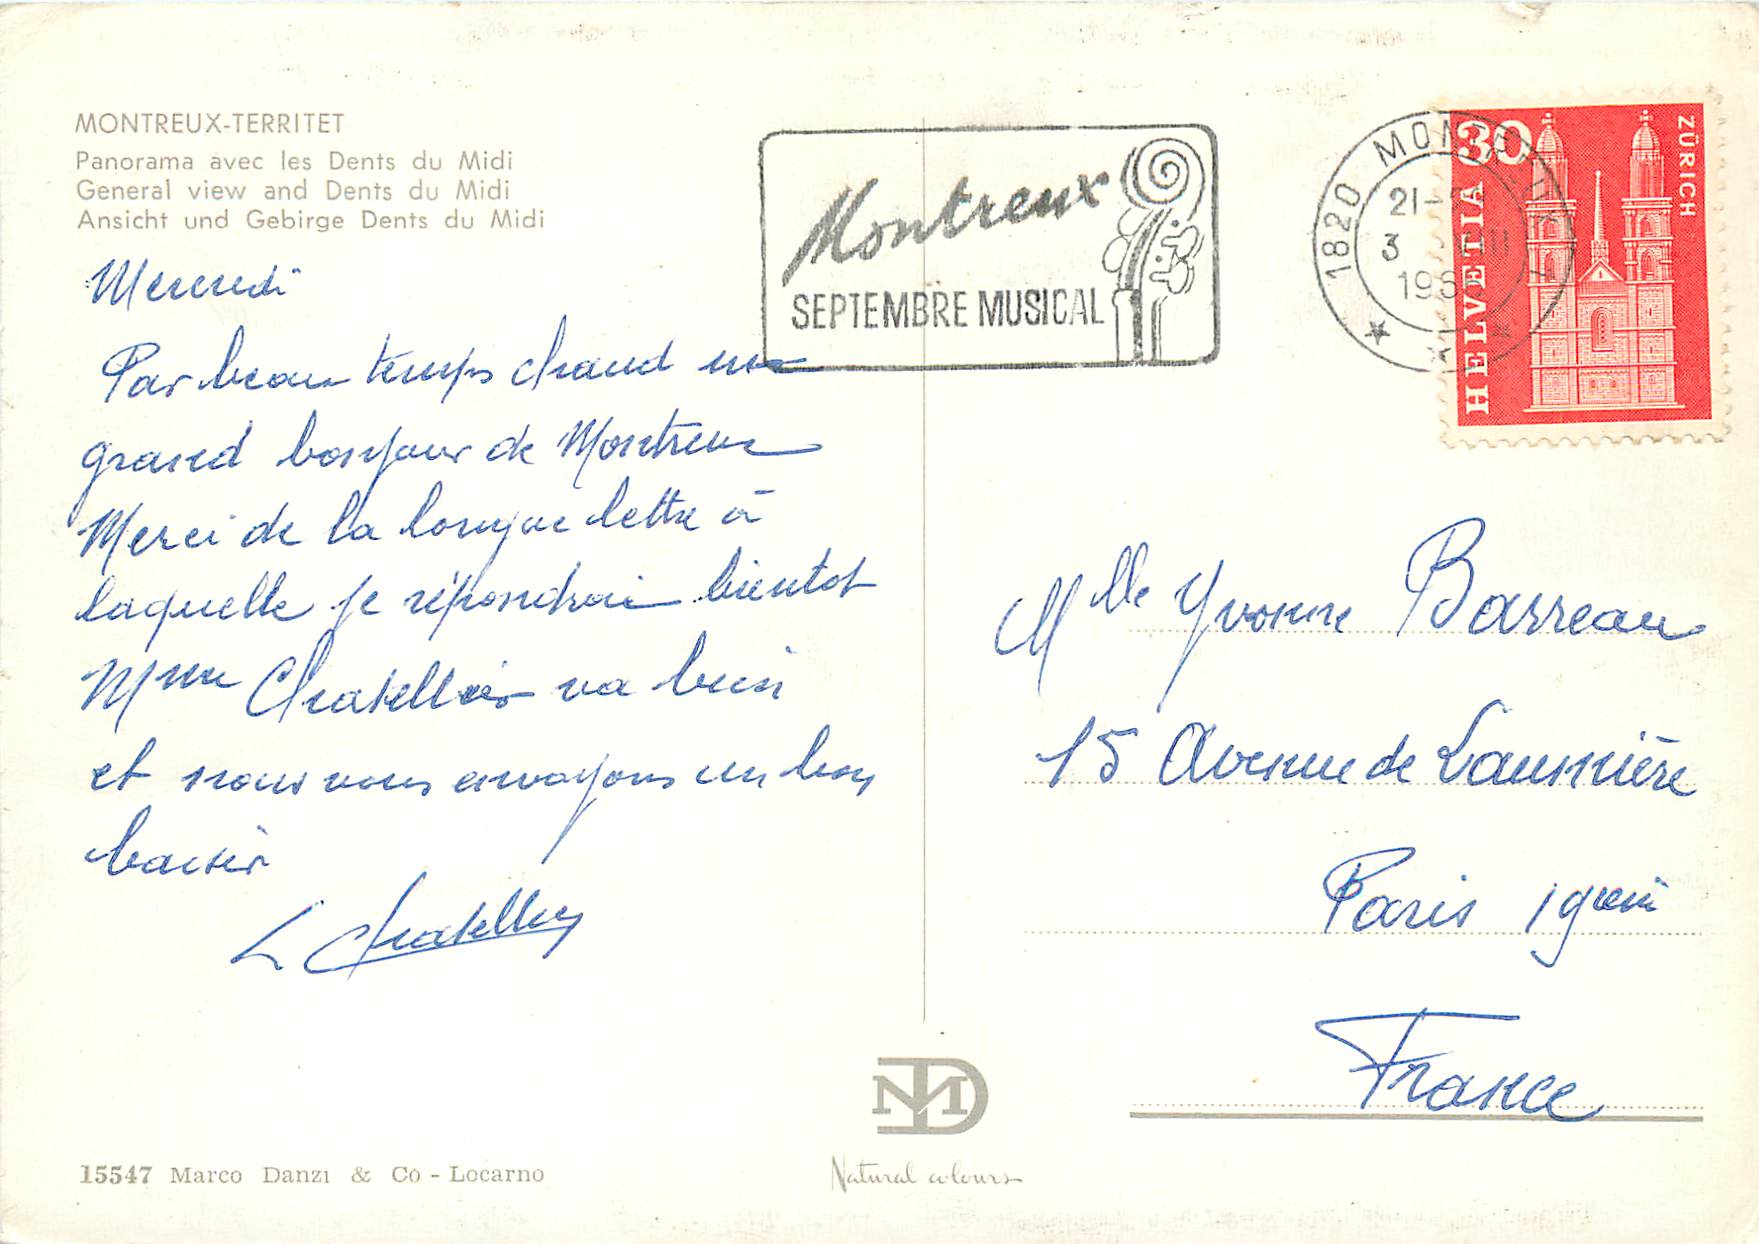 MONTREUX-TERRITET
Panorama avec les Dents du Midi
General view and Dents du Midi
Ansicht und Gebirge Dents du Midi
Mercredi
Par beau temps chaud un
grand bonjour de Montreux
Merci de la longue lettre à
laquelle je répondrai bientot
Mme Chatellier va bien
et nous vous envoyons un bon
baiser
L Chatellier
15547 Marco Danzi & Co - Locarno
Montreux
SEPTEMBRE MUSICAL
1820 MONTREUX
21-
3 VIII
196
30
HELVETIA
ZÜRICH
Mlle Yvonne Barreau
15 Avenue de Laumière
Paris 19em
France
MD
Natural colours